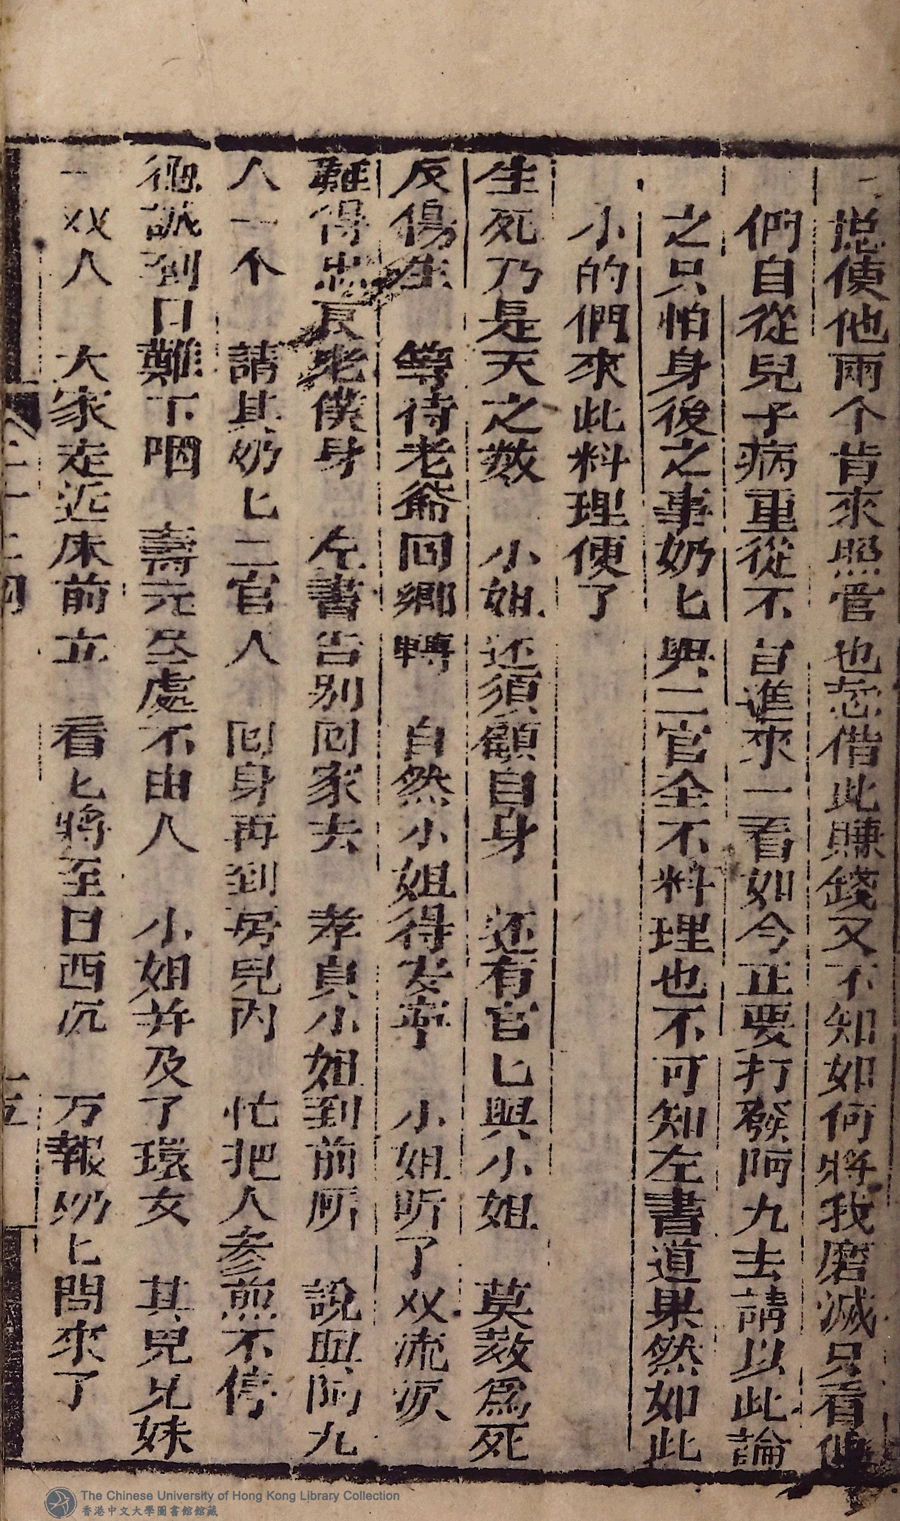 說使他兩个肯來照管也恐借此賺錢又不知如何將我磨滅只看他
們自從兒子病重從不自進來一看如今正要打發阿九去請以此論
之只怕身後之事奶匕與二官全不料理也不可知左書道果然如此
小的們來此料理便了
生死乃是天之数 小姐还須顧自身 还有官匕與小姐 莫教為死
反傷生 等待老爺回鄉轉 自然小姐得安寧 小姐听了双流淚
難得忠良老僕身 左書告别回家去 孝貞小姐到前所 說與阿九
人一个 請其奶匕二官人 回身再到房兒内 忙把人參煎不停
誠到口難下咽 壽元尽處不由人 小姐并及了環女 其兒兄妹
一双人 大家走近床前立 看匕將至日西沉 万報奶匕問來了
二十二回
十五
The Chinese University of Hong Kong Library Collection
香港中文大學圖書館館藏